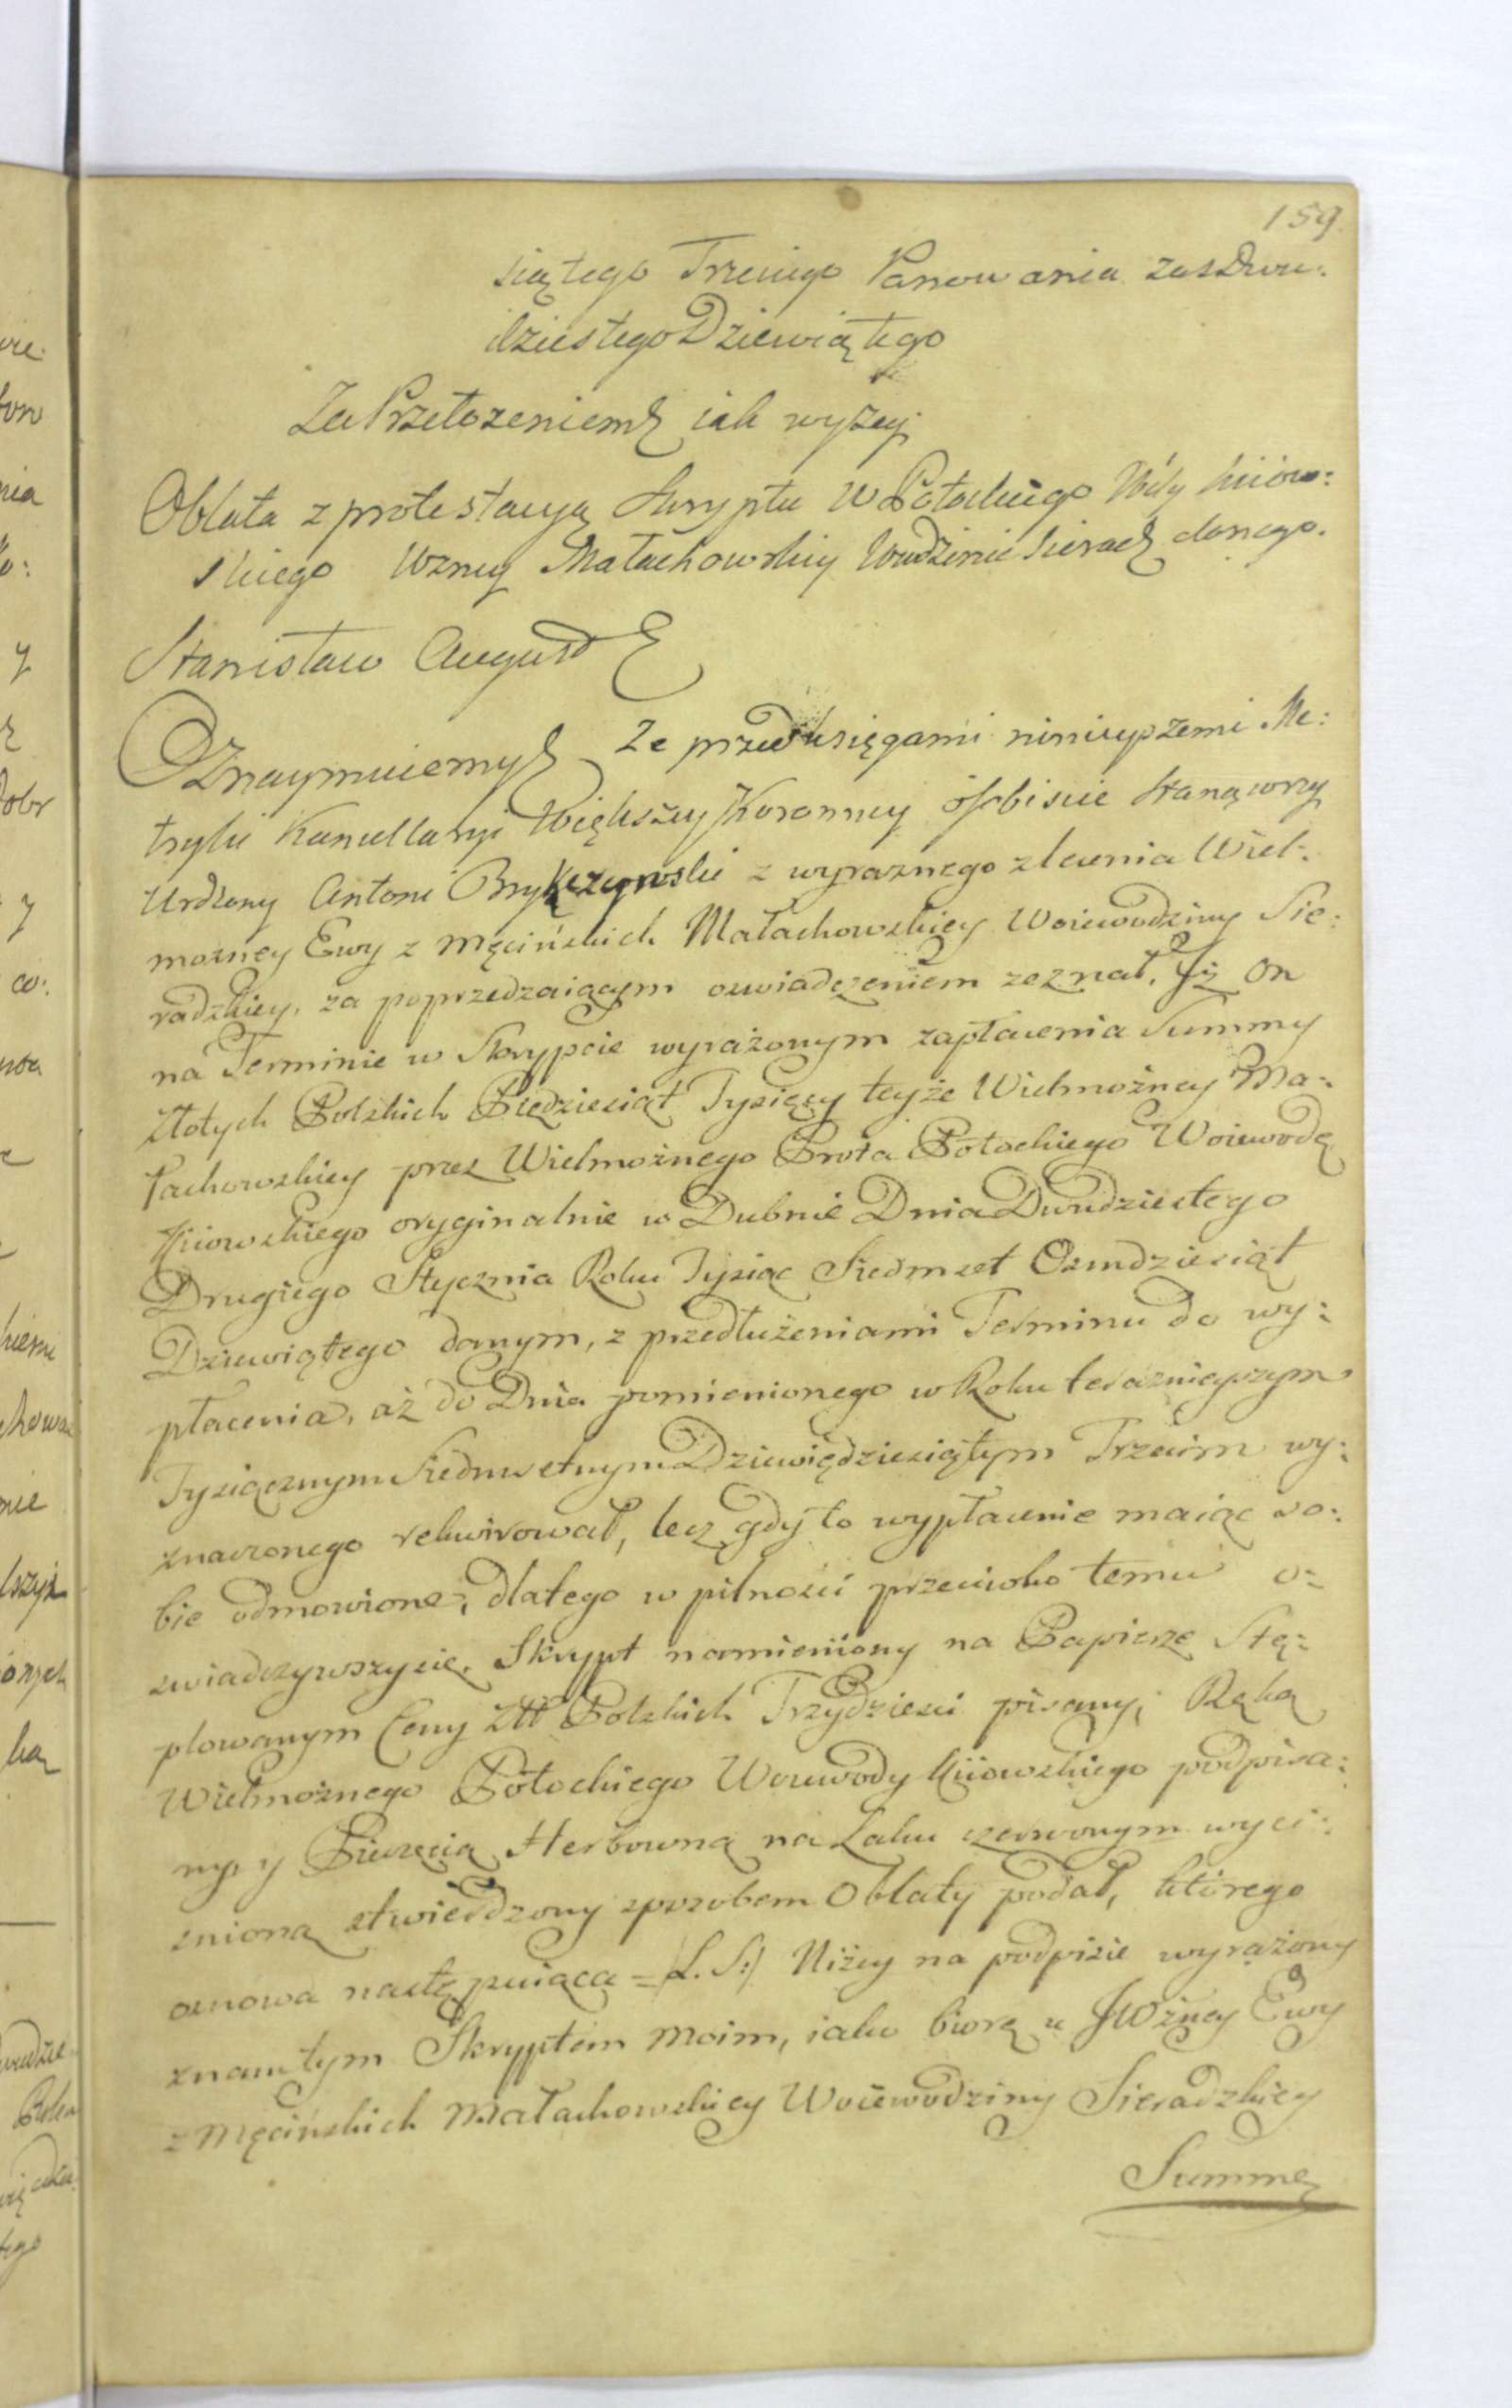 159
siątego Trzeciego Panowania zas Dwu:
dziestego Dziewiątego
Za Przełożeniem iak wyżey
Oblata z protestacyą Skryptu W Potockiego Wdy kiiow:
skiego Wzney Małachowskiy Wwdzinie Sieradz danego.
Stanisław August
Oznaymuiemy Ze przed księgami ninieyszemi Me:
tryki Kancellaryi Większey Koronney osobiscie stanąwszy
Urdzony Antoni z wyraznego zlecenia Wiel:
mozney Ewy z Męcińskich Małachowskiey Woiewodziny Sie:
radzkiey, za poprzedzaiącym oswiadczeniem zeznał, Iż on
na Terminie w Skrypcie wyrażonym zapłacenia Summy
Złotych Polskich Piędziesiąt Tysięcy teyże Wielmożney Ma:
łachowskiey przez Wielmożnego Prota Potockiego Woiewodę
Kiiowskiego oryginalnie w Dubnie Dnia Dwudziestego
Drugiego Stycznia Roku Tysiąc Siedmset Osmdziesiąt
Dziewiątego danym, z przedłużeniami Terminu do wy:
płacenia, aż do Dnia pomienionego w Roku teraznieyszym
Tysiącznym Siedmsetnym Dziewiędziesiątym Trzecim wy:
znaczonego rekwirował, lecz gdy to wypłacenie maiąc so:
bie odmowione, dlatego w pilności przeciwko temu o:
swiadczywszysie, Skrypt namieniony na Papierze Stę:
plowanym Ceny Złł Polskich Trzydziesci pisany, Ręką
Wielmożnego Potockiego Woiewody Kiiowskiego podpisa:
ny, y Pieczęcią Herbowną na Laku czerwonym wyci:
snioną stwierdzony sposobem Oblaty podał, którego
osnowa nastę puiąca = (L. S:) Niżey na podpisie wyrażony
znam tym Skryptem moim, iako biorę u JWżney Ewy
z Męcińskich Małachowskiey Woiewodziny Sieradzkiey
Summę